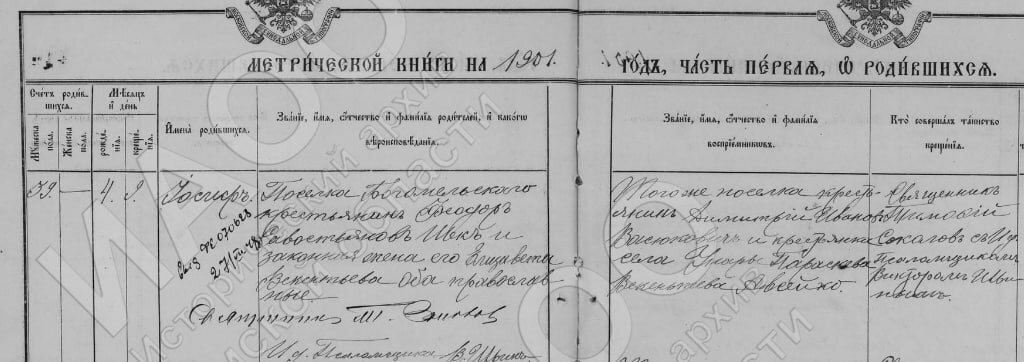 МЕТРИ́ЧЕСКОЙ КНИ́ГИ НА 1901.
ГОДЪ, ЧА́СТЬ ПЕ́РВАѦ, Ѽ РОДИ́ВШИХСѦ.
Счетъ роди́вшихся.
Мѣсяцъ и день
Мужеска пола.
Женска пола.
рожденія.
крещенія.
Имена роди́вшихся.
Званіе, имя, отчество и фамилія роди́телей, и какого
вѣроисповѣданія.
Званіе, имя, отчество и фамилія
воспріемниковъ.
Кто совершалъ таинство
крещенія.
39.
4.
9.
Іосифъ.
Поселка Богомельскаго
крестьянинъ Ѳеодоръ
Савостьяновъ и
законная жена его Елизавета
Викентьева оба православ-
ные.
Тогоже поселка кресть-
янинъ Димитрій Ивановъ
Васюковичъ и крестьянка
села Параскева
Викентьева Авсейко.
Священникъ
Тимоѳей
Соколовъ съ И. д.
Псаломщикомъ
Викторомъ
Священникъ Т. Соколовъ
И. д. Псаломщика В.